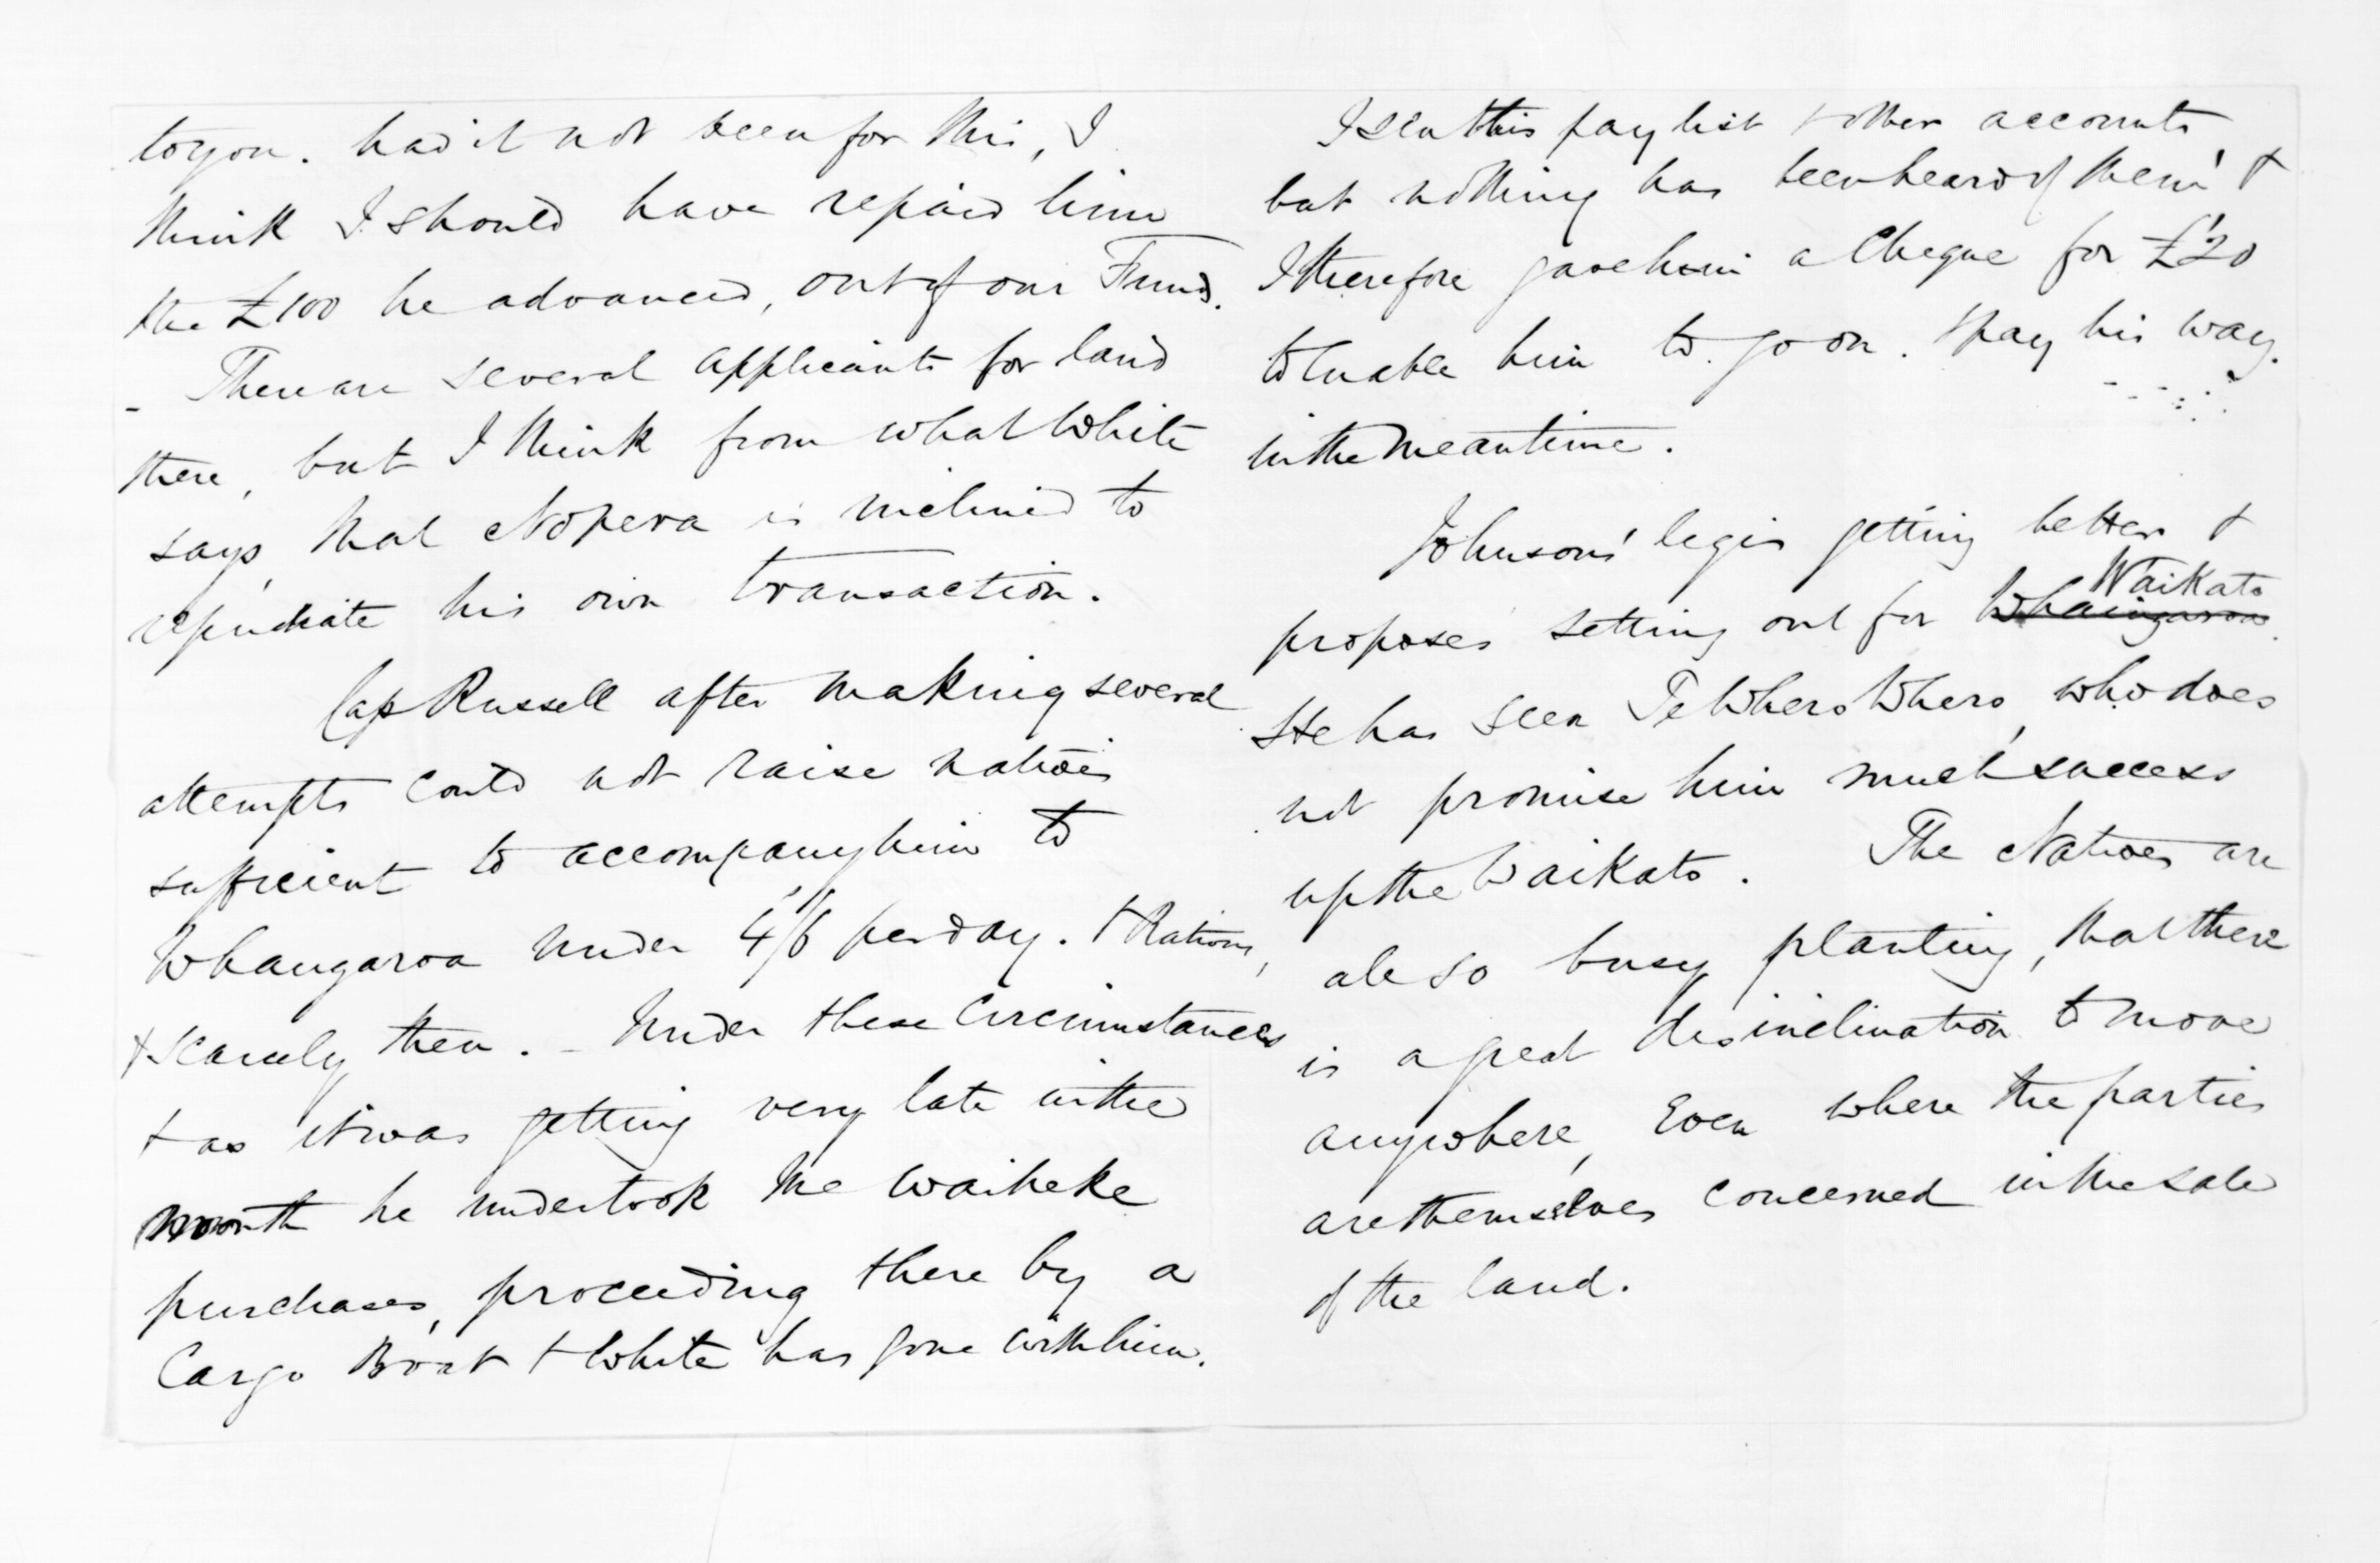 to you. had it not been for this, I
think I should have repaid him
the £100 he advanced, out of our Fund.
- There are several applicants for land
there, but I think from what White
says, that Nopera is inclined to
repudiate his own transaction.
Cap Russell after making several
attempts could not raise natives
sufficient to accompany him to
Whangaroa under 4/6 per day. & Rations,
& scarcely then. - Under these circumstances
& as it was getting very late in the
month he undertook the Waiheke
purchases, proceeding there by a
Cargo Boat & White has gone with him.
I sent his pay list & other accounts,
but nothing has been heard of them &
I therefore gave him a Cheque for £20
to enable him to go on. & pay his way.
in the meantime.
Johnson's leg is getting better &
proposes setting out for Whaingaroa Waikato
He has seen Te Whero Whero, who does
not promise him much success
up the Waikato. The Natives are
all so busy planting, that there
is a great disinclination to move
anywhere, Even where the parties
are themselves concerned in the sale
of the land.